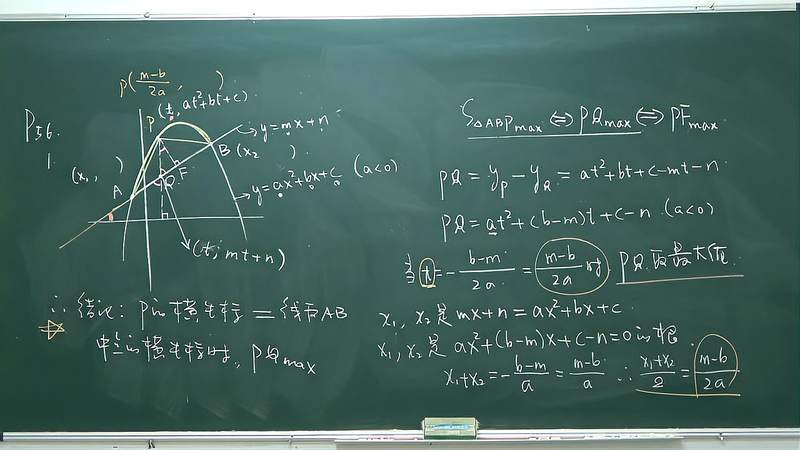 P56.
1.
P(\frac{m-b}{2a}, )
(t, at²+bt+c)
P
y=mx+n
B(x₂ )
(x₁, )
A
F
Q
y=ax²+bx+c (a<0)
(t, mt+n)
∴ 结论: P的横坐标 = 线段AB
中点的横坐标时, PQmax
S△ABPmax ⇔ PQmax ⇔ PFmax
PQ = yP - yQ = at²+bt+c-mt-n
PQ = at²+(b-m)t+c-n (a<0)
当 t = -\frac{b-m}{2a} = \frac{m-b}{2a} 时 PQ 取最大值
x₁, x₂是 mx+n = ax²+bx+c
x₁, x₂是 ax²+(b-m)x+c-n=0的根
x₁+x₂ = -\frac{b-m}{a} = \frac{m-b}{a} ∴ \frac{x₁+x₂}{2} = \frac{m-b}{2a}